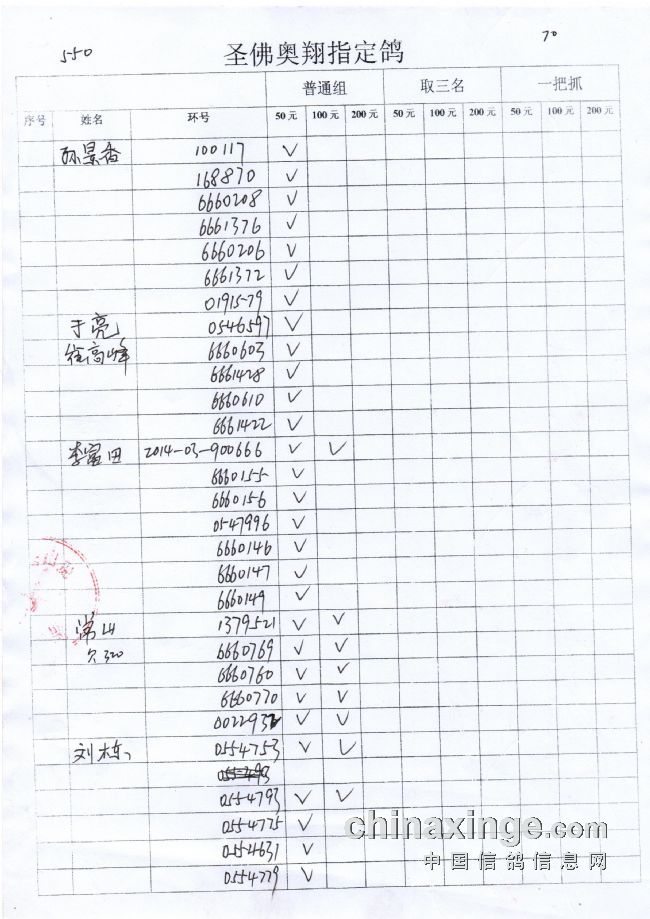 550
70
圣佛奥翔指定鸽
普通组 取三名 一把抓
序号 姓名 环号 50元 100元 200元 50元 100元 200元 50元 100元 200元
孙景香 100117 ✓
168870 ✓
6660208 ✓
6661376 ✓
6660206 ✓
6661372 ✓
0191579 ✓
于亮 0546597 ✓
徐高峰 6660603 ✓
6661428 ✓
6660610 ✓
6661422 ✓
李富田 2014-03-900666 ✓ ✓
6660155 ✓
6660156 ✓
0547996 ✓
6660146 ✓
6660147 ✓
6660149 ✓
常山 1379521 ✓ ✓
欠320 6660769 ✓ ✓
6660760 ✓ ✓
6660770 ✓ ✓
0022932 ✓ ✓
刘栋 0554753 ✓ ✓
0554793 ✓ ✓
0554775 ✓
0554631 ✓
0554779 ✓
chinaxinge.com
中国信鸽信息网